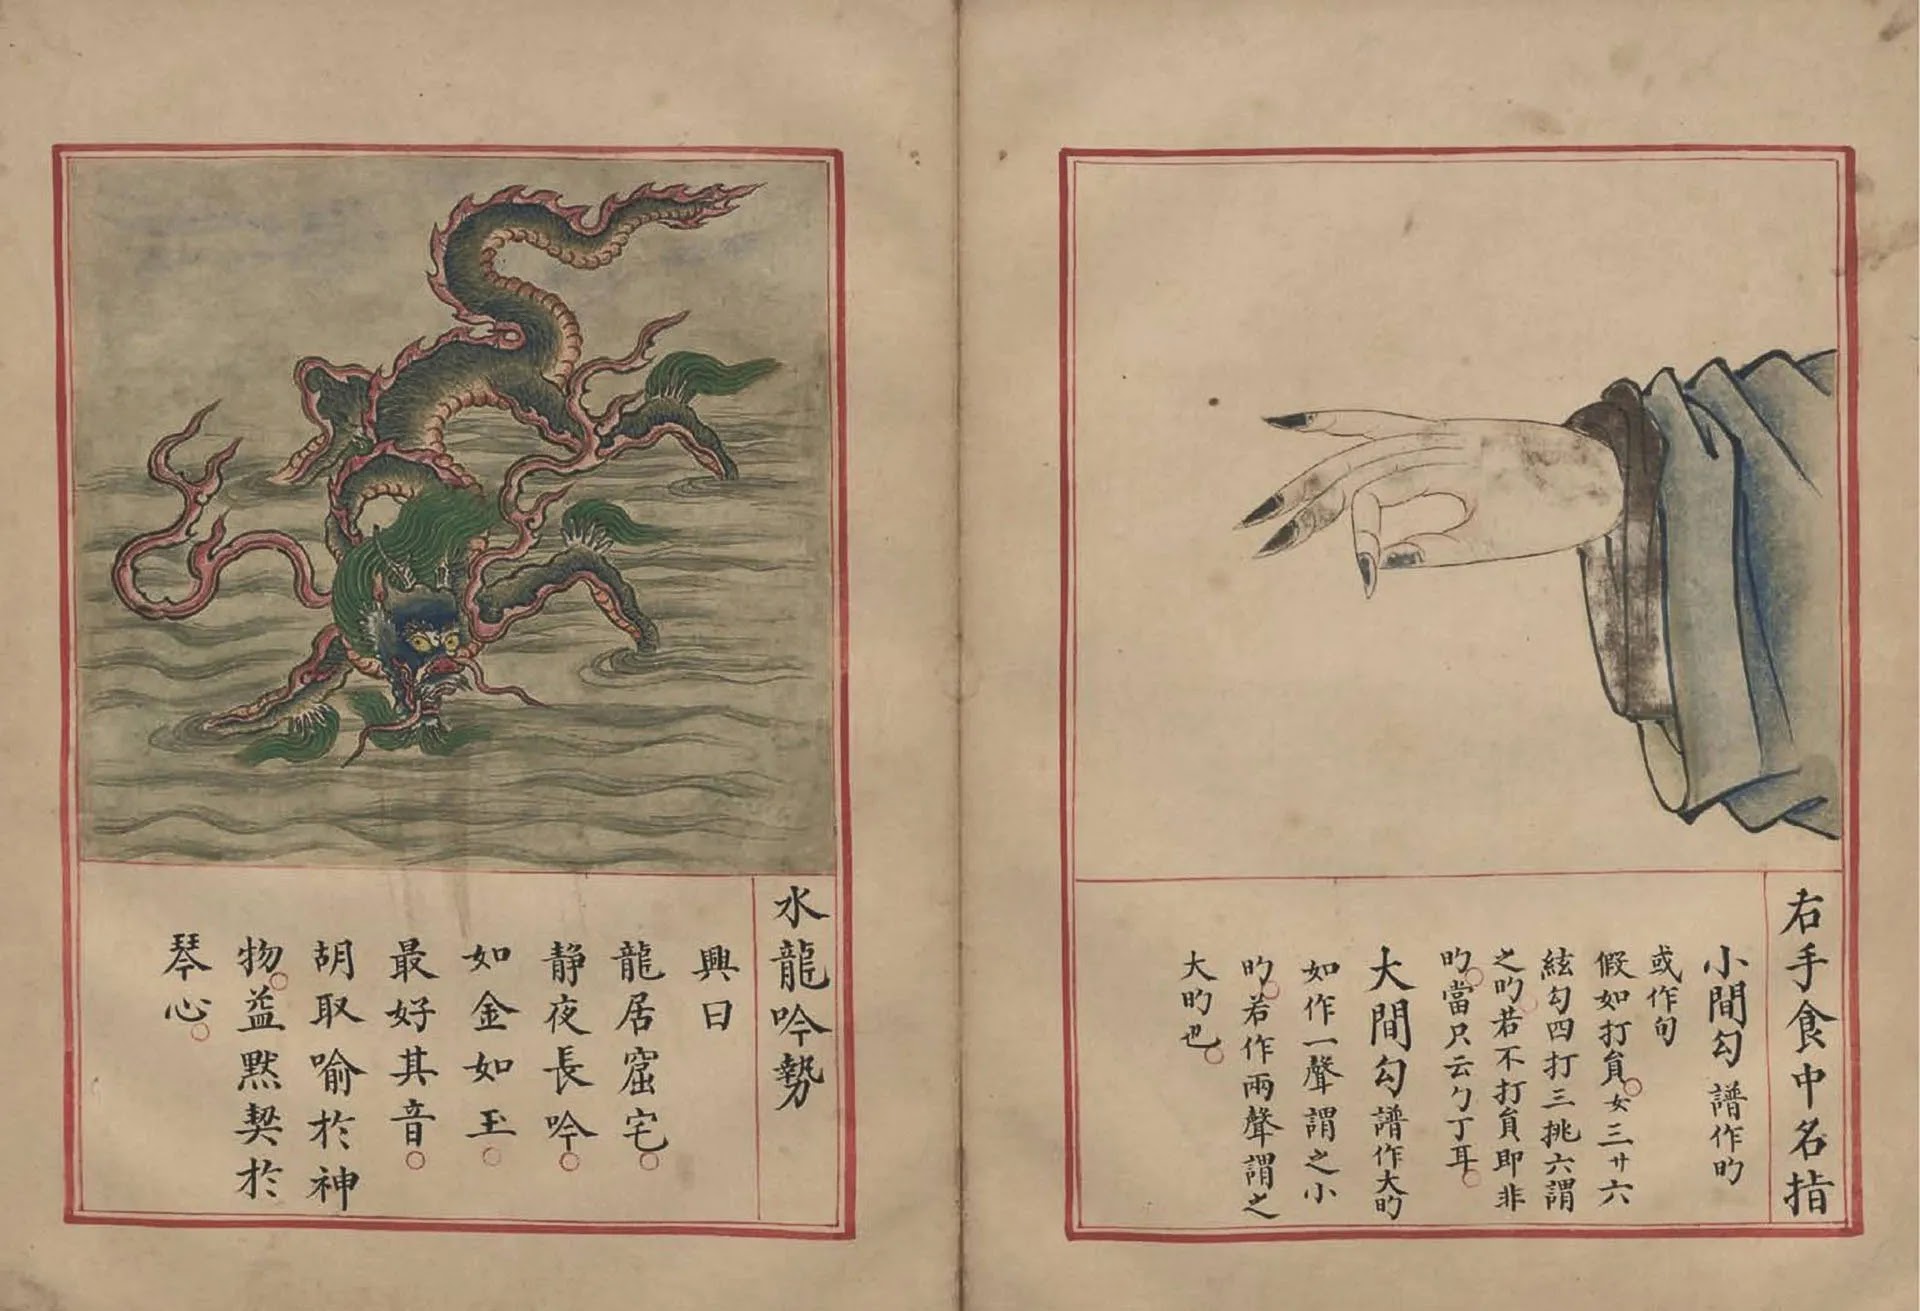 右手食中名指
小間勾 譜作㫁
或作句
假如打負女三廾六
絃勾四打三挑六謂
之㫁若不打負即非
㫁當只云勹丁耳
大間勾 譜作大㫁
如作一聲謂之小
㫁若作兩聲謂之
大㫁也
水龍吟勢
興曰
龍居窟宅
静夜長吟
如金如玉
最好其音
胡取喻於神
物益默契於
琴心